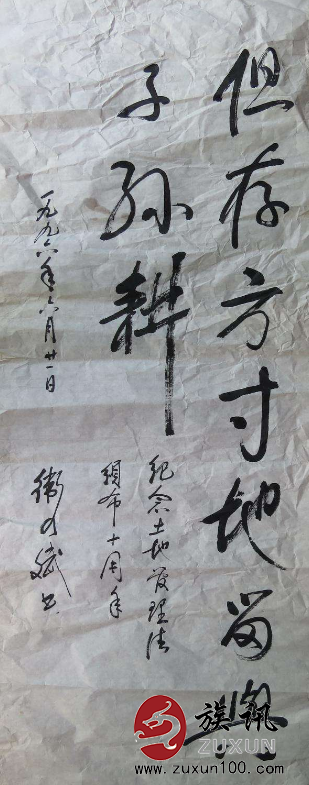 但存方寸地留與
子孫耕
紀念土地管理法
頒布十周年
一九九六年六月廿一日
族讯
ZUXUN
www.zuxun100.com